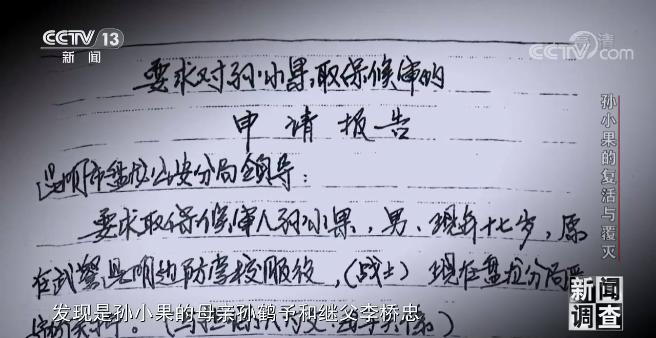 CCTV 13
新闻
高清
CCTV.com
要求对孙小果取保候审的
申请报告
昆明市盘龙公安分局领导：
要求取保候审人孙小果，男，现年十七岁，原
在武警昆明边防学校服役，（战士）现在盘龙分局
发现是孙小果的母亲孙鹤予和继父李桥忠
孙小果的复活与覆灭
新闻
调查